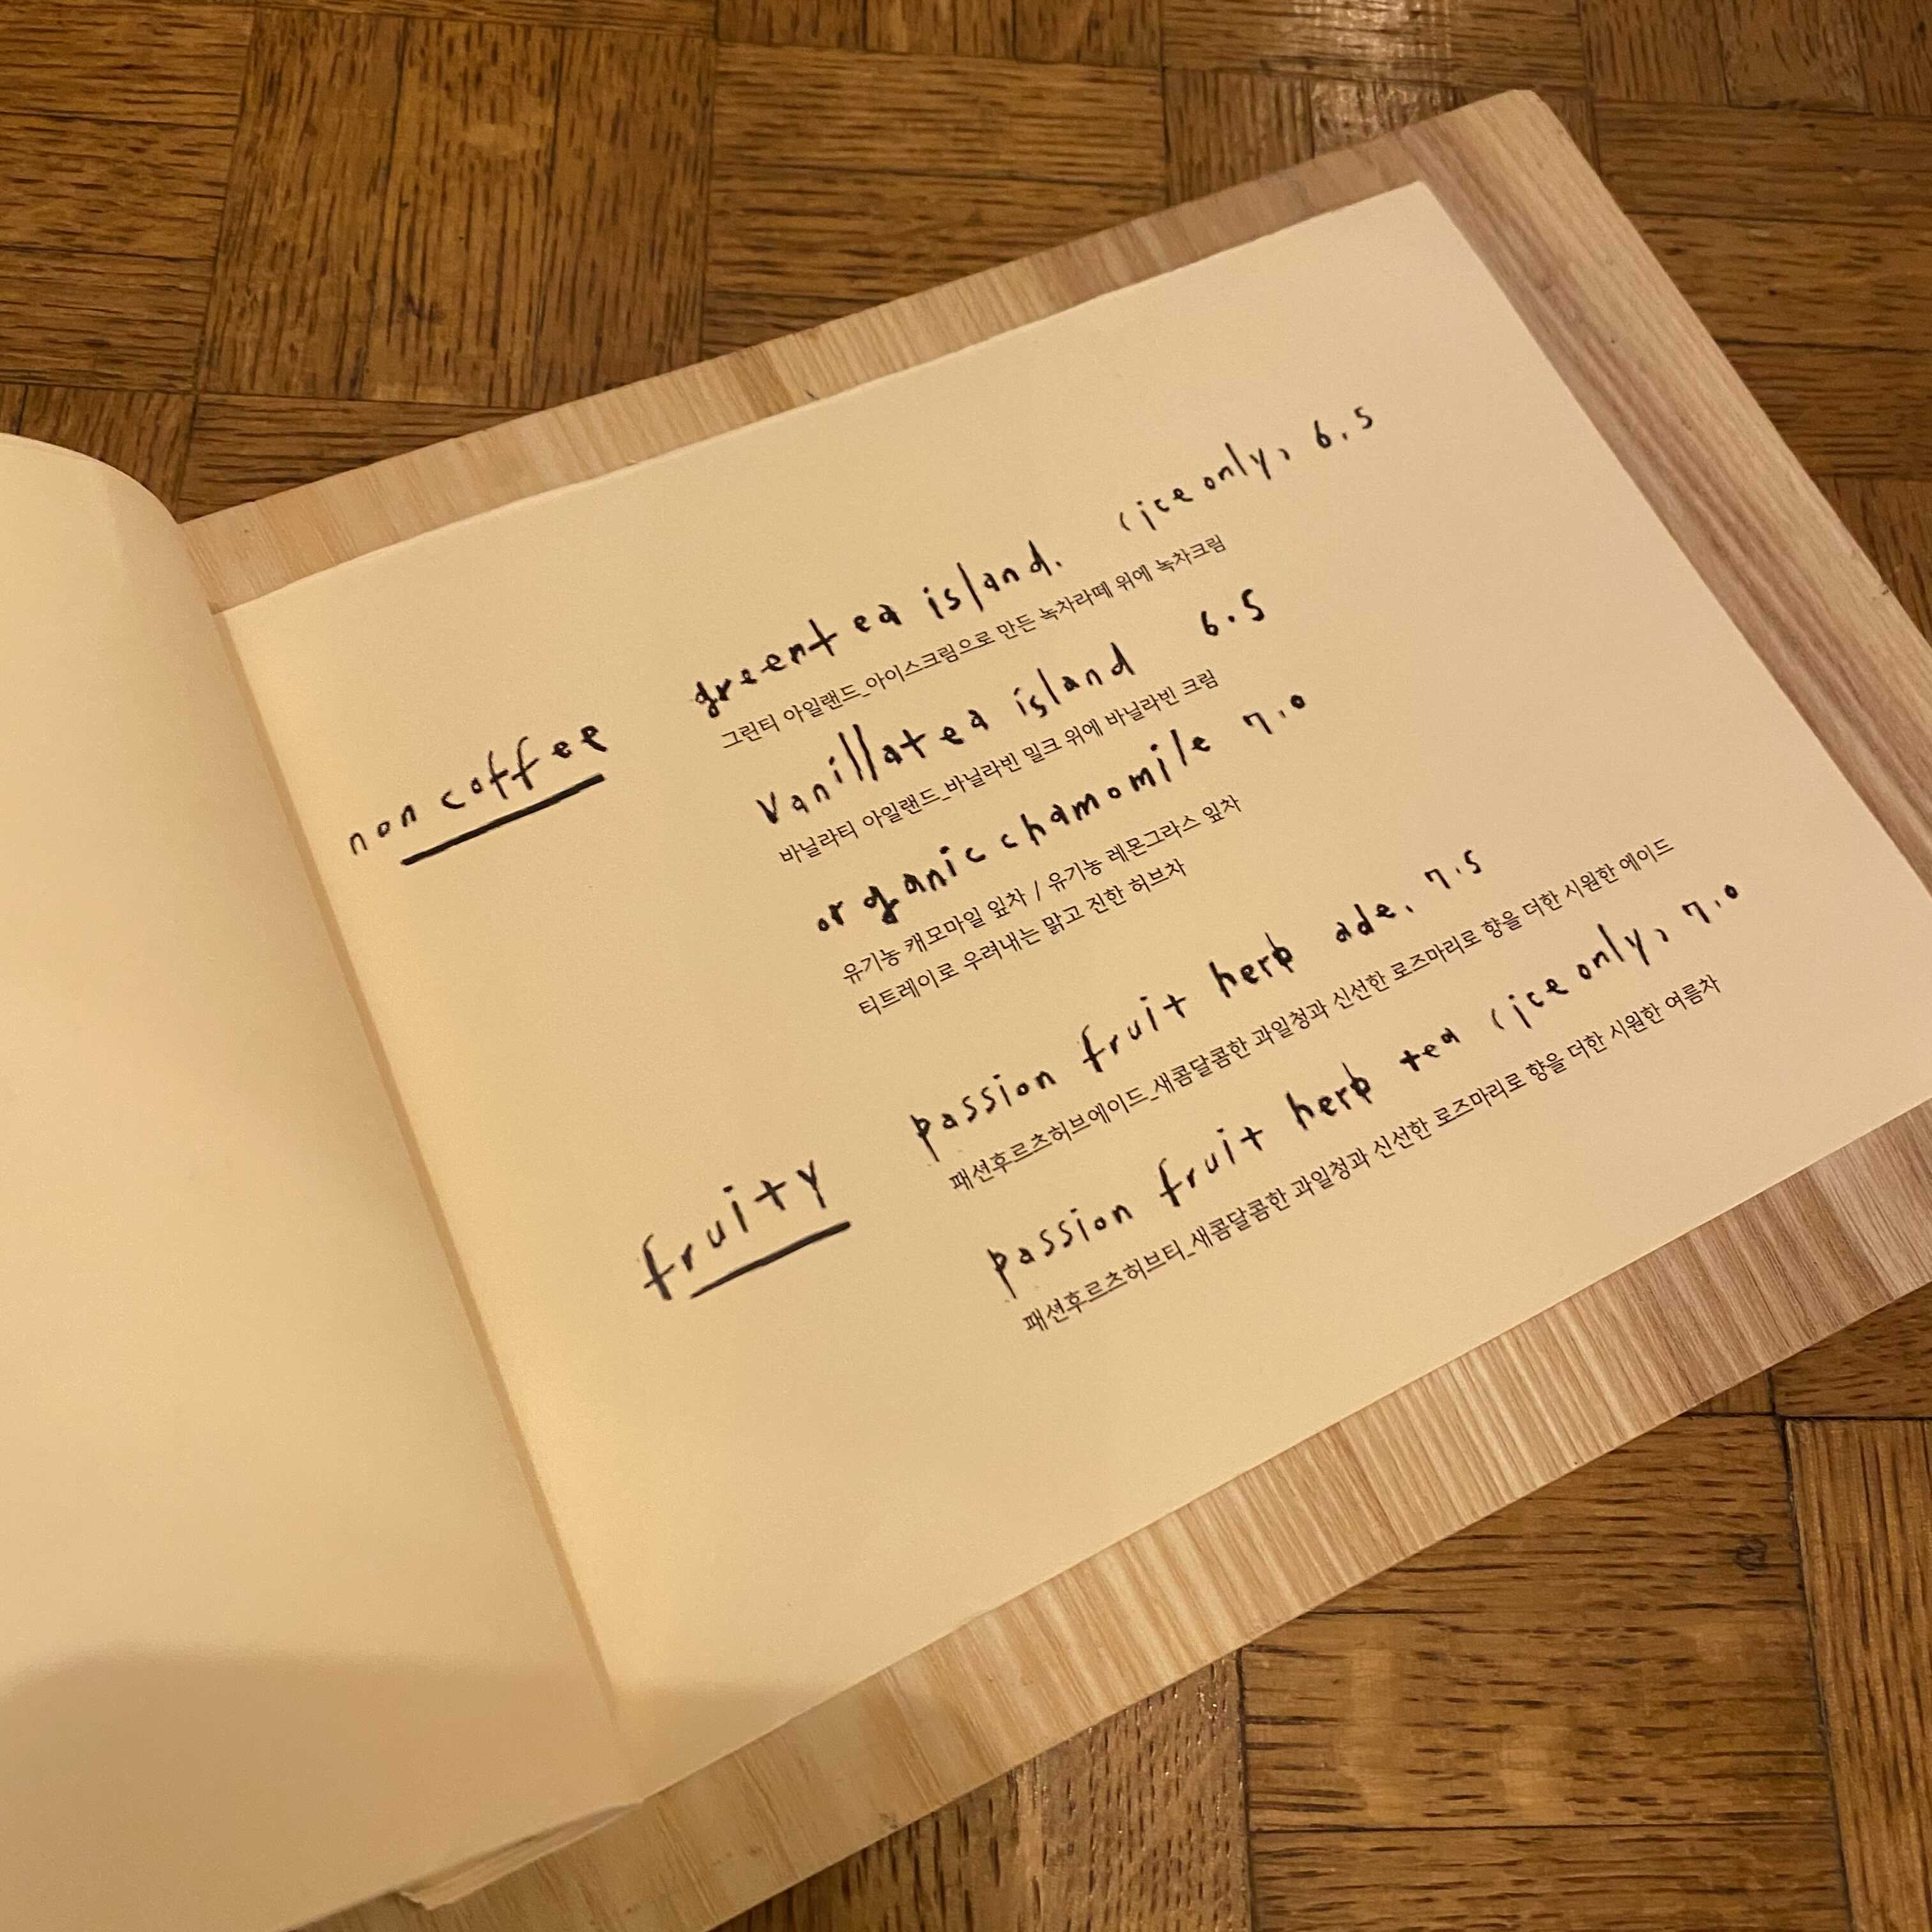 non coffee
green tea island. (ice only) 6.5
그린티 아일랜드_아이스크림으로 만든 녹차라떼 위에 녹차크림
vanilla tea island 6.5
바닐라티 아일랜드_바닐라빈 밀크 위에 바닐라빈 크림
organic chamomile 7.0
유기농 캐모마일 잎차 / 유기농 레몬그라스 잎차
티트레이로 우려내는 맑고 진한 허브차
fruity
passion fruit herb ade. 7.5
패션후르츠허브에이드_새콤달콤한 과일청과 신선한 로즈마리로 향을 더한 시원한 에이드
passion fruit herb tea (ice only) 7.0
패션후르츠허브티_새콤달콤한 과일청과 신선한 로즈마리로 향을 더한 시원한 여름차